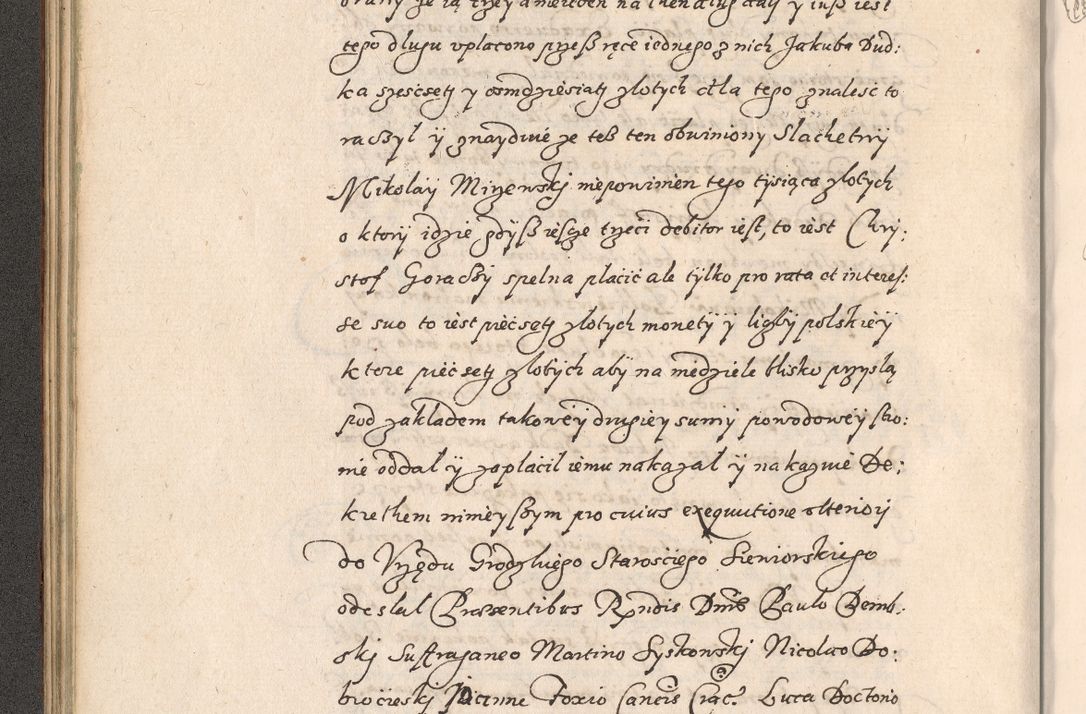 tego dlugu vplacono przesz ręce iednego z nich Jakuba Dud:
ka szescsetÿ y osmdziesiatÿ zlotych dla tego znalesć to
raczÿl ÿ znayduie ze tesz ten obwiniony Slachetnÿ
Mikolaÿ Mizewskÿ niepowinien tego tÿsiąca zlotych
o ktorÿ idzie gdÿsz ieszcze trzeci debitor iest, to iest Chrÿ:
stof Goraczÿ spelna placić ale tÿlko pro rata et interes:
se suo to iest piećsetÿ zlotych monetÿ ÿ liczbÿ polskieÿ
ktore piećsetÿ zlotych abÿ na niedziele blisko przyslą
pod zakladem takoweÿ drugieÿ sumÿ powodoweÿ stro:
nie oddal ÿ zaplacil iemu nakazal ÿ nakazuie De:
krethem ninieÿszym pro cuius exequutione vlteriori
do Vrzędu Grodzkiego Starosćiego Sieniorskiego
odeslal Praesentibus Rndis Dmis Paulo Demb:
skj Suffraganeo Martino Lyskowskÿ Nicolao Do:
brocieskj Joanne Foxio Cancris Crac. Luca Doctorio